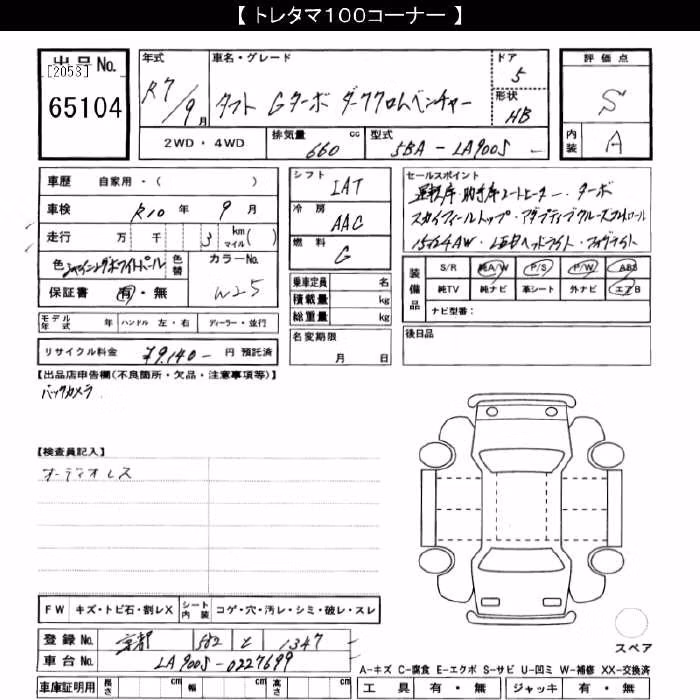 【 トレタマ100コーナー 】
出品No.
[2053]
65104
年式
R7/9月
車名・グレード
タフト Gターボ ダーククロムベンチャー
ドア
5
形状
HB
評価点
S
内装
A
2WD・4WD
排気量
660
cc
型式
5BA-LA900S
車歴 自家用・( )
車検 R10年 9月
走行 万 千 3 km マイル( )
色 シャイニングホワイトパール
色替
カラーNo.
W25
保証書 有・無
モデル年式 年 ハンドル 左・右 ディーラー・並行
リサイクル料金 ¥9,140- 円 預託済
シフト
IAT
冷房
AAC
燃料
G
乗車定員 名
積載量 kg
総重量 kg
名変期限
月 日
セールスポイント
運転席・助手席シートヒーター・ターボ
スカイフィールトップ・アダプティブクルーズコントロール
15インチAW・LEDヘッドライト・フォグライト
装備品
S/R 純A/W P/S P/W ABS
純TV 純ナビ 革シート 外ナビ エアB
ナビ型番:
後日品
【出品店申告欄(不良箇所・欠品・注意事項等)】
バックカメラ
【検査員記入】
オーディオレス
FW キズ・トビ石・割レX シート内装 コゲ・穴・汚レ・シミ・破レ・スレ
登録No. 京都 582 と 1347
車台No. LA900S-0227699
車庫証明用 長さ cm 幅 cm 高さ cm
スペア
A-キズ C-腐食 E-エクボ S-サビ U-凹ミ W-補修 XX-交換済
工具 有・無 ジャッキ 有・無